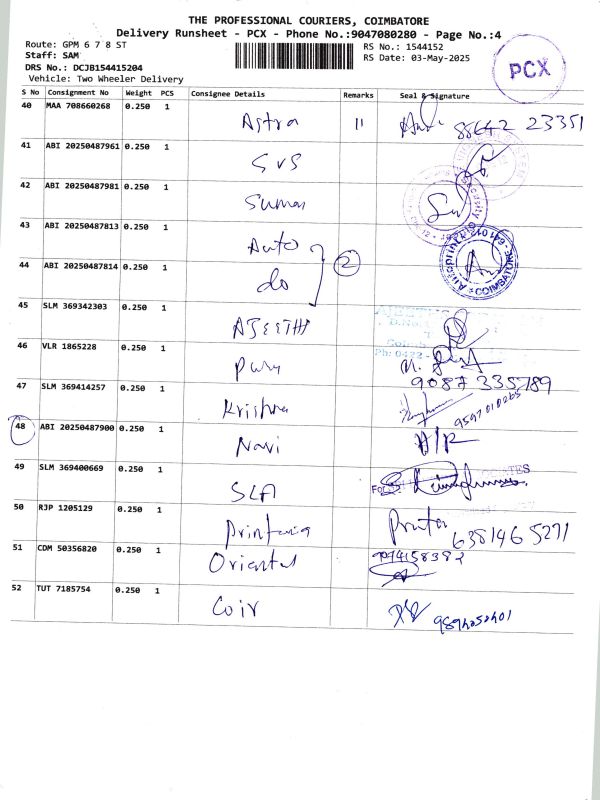 THE PROFESSIONAL COURIERS, COIMBATORE
Delivery Runsheet - PCX - Phone No.:9047080280 - Page No.:4
Route: GPM 6 7 8 ST
RS No.: 1544152
Staff: SAM
RS Date: 03-May-2025
DRS No.: DCJB154415204
Vehicle: Two Wheeler Delivery
PCX
S No Consignment No Weight PCS Consignee Details Remarks Seal & Signature
40 MAA 708660268 0.250 1 Astra 11
41 ABI 20250487961 0.250 1 SVS
42 ABI 20250487981 0.250 1 Suman
43 ABI 20250487813 0.250 1 Auto
2
44 ABI 20250487814 0.250 1 do
COIMBATORE
45 SLM 369342303 0.250 1 AJEETHI
46 VLR 1865228 0.250 1
9087 335789
47 SLM 369414257 0.250 1 Krishna
9597010265
48 ABI 20250487900 0.250 1 Navi H/R
49 SLM 369400669 0.250 1 SLA
50 RJP 1205129 0.250 1 Printania Printa 6381465271
51 CDM 50356820 0.250 1 Oriental
52 TUT 7185754 0.250 1 Coir